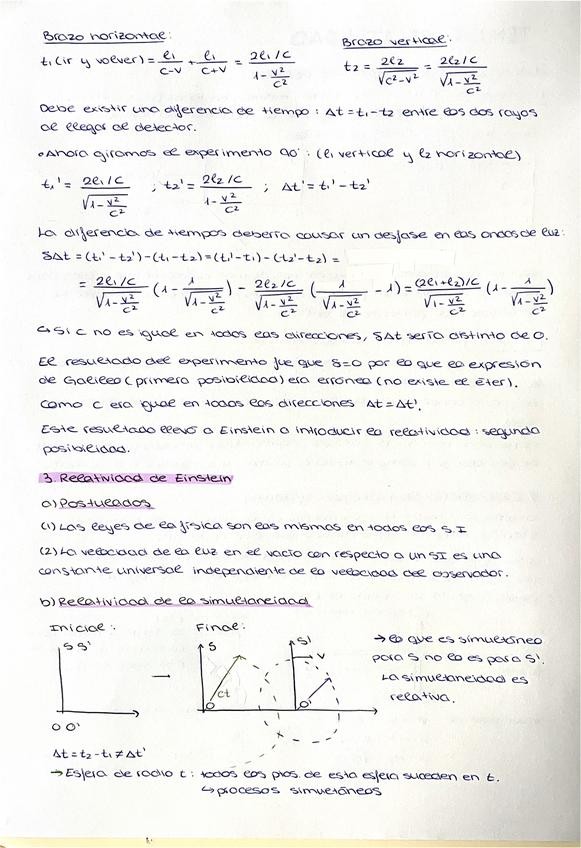 Brazo horizontal:
t₁(ir y volver) = l₁/(c-v) + l₁/(c+v) = (2l₁/c)/(1-v²/c²)
Brazo vertical:
t₂ = 2l₂/√(c²-v²) = (2l₂/c)/√(1-v²/c²)
Debe existir una diferencia de tiempo: Δt = t₁-t₂ entre los dos rayos
al llegar al detector.
• Ahora giramos el experimento 90°: (l₁ vertical y l₂ horizontal)
t₁' = (2l₁/c)/√(1-v²/c²) ; t₂' = (2l₂/c)/(1-v²/c²) ; Δt' = t₁'-t₂'
La diferencia de tiempos debería causar un desfase en las ondas de luz:
δΔt = (t₁'-t₂')-(t₁-t₂) = (t₁'-t₁)-(t₂'-t₂) =
= (2l₁/c)/√(1-v²/c²) (1 - 1/√(1-v²/c²)) - (2l₂/c)/√(1-v²/c²) (1/√(1-v²/c²) - 1) = ((2l₁+l₂)/c)/√(1-v²/c²) (1 - 1/√(1-v²/c²))
↪ Si c no es igual en todas las direcciones, δΔt sería distinto de 0.
El resultado del experimento fue que δ=0 por lo que la expresión
de Galileo (primera posibilidad) era errónea (no existe el Éter).
Como c era igual en todas las direcciones Δt = Δt'.
Este resultado llevó a Einstein a introducir la relatividad: segunda
posibilidad.
3. Relatividad de Einstein
a) Postulados
(1) Las leyes de la física son las mismas en todos los S.I
(2) La velocidad de la luz en el vacío con respecto a un SI es una
constante universal independiente de la velocidad del observador.
b) Relatividad de la simultaneidad
Inicial:
Final:
S S'
O O'
→
S
ct
O
S'
v
O'
→ lo que es simultáneo
para S no lo es para S'.
La simultaneidad es
relativa.
Δt = t₂-t₁ ≠ Δt'
→ Esfera de radio t: todos los ptos. de esta esfera suceden en t.
↪ procesos simultáneos